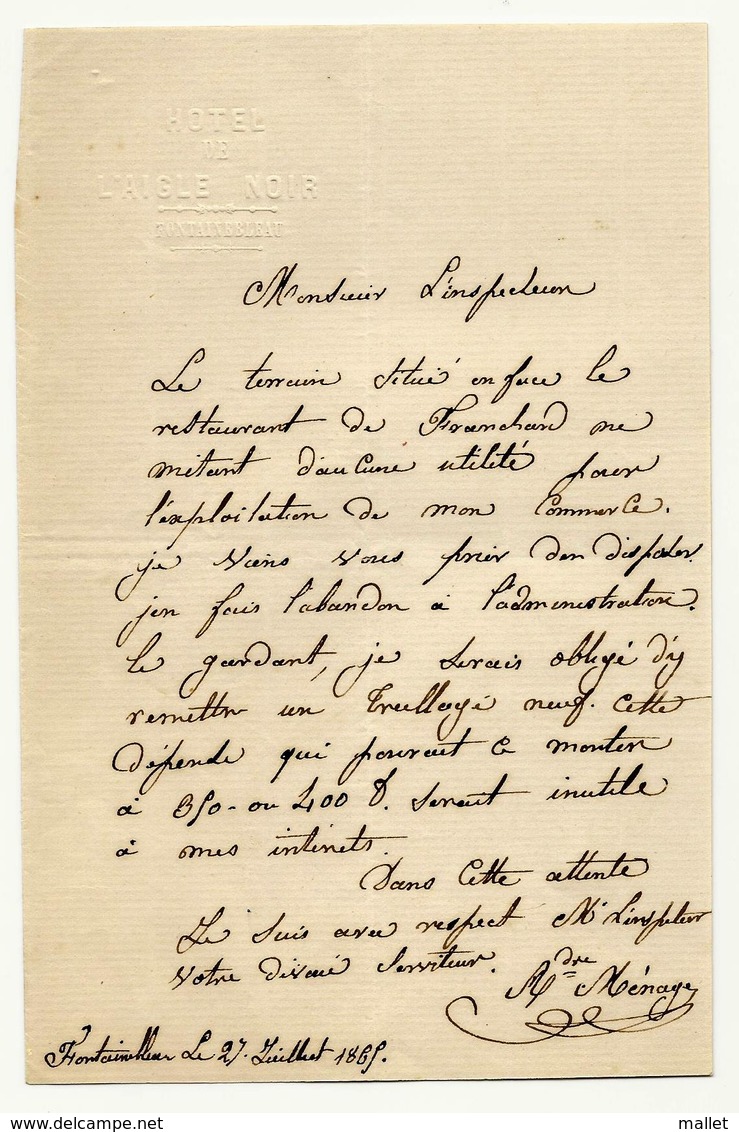 HOTEL
DE
L'AIGLE NOIR
FONTAINEBLEAU
Monsieur L'inspecteur
Le terrain situé en face le
restaurant de Franchard ne
m'étant d'aucune utilité pour
l'éxploitation de mon Commerce.
je vains vous prier d'en disposer.
j'en fais l'abandon à l'administration.
le gardant, je serais obligé d'y
remettre un treillage neuf. Cette
dépense qui pourait ce monter
à 350 - ou 400 f. serait inutile
à mes intérêts.
Dans cette attente
Je suis avec respect Mr L'inspecteur
votre dévoué serviteur.
Adre Ménage
Fontainebleau Le 27. Juillet 1865.
www.delcampe.net
mallet